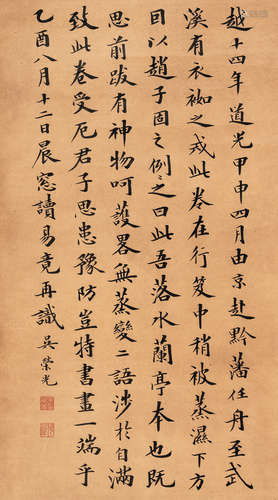 越十四年道光甲申四月由京赴黔藩任丹至武
溪有衣袽之戒此卷在行笈中稍被蒸濕下方
因以趙子固之例之曰此吾落水蘭亭本也既
思前跋有神物呵護畧無蒸變二語涉於自滿
致此卷受厄君子思患豫防豈特書畫一端乎
乙酉八月十二日晨窓讀易竟再識 吳榮光